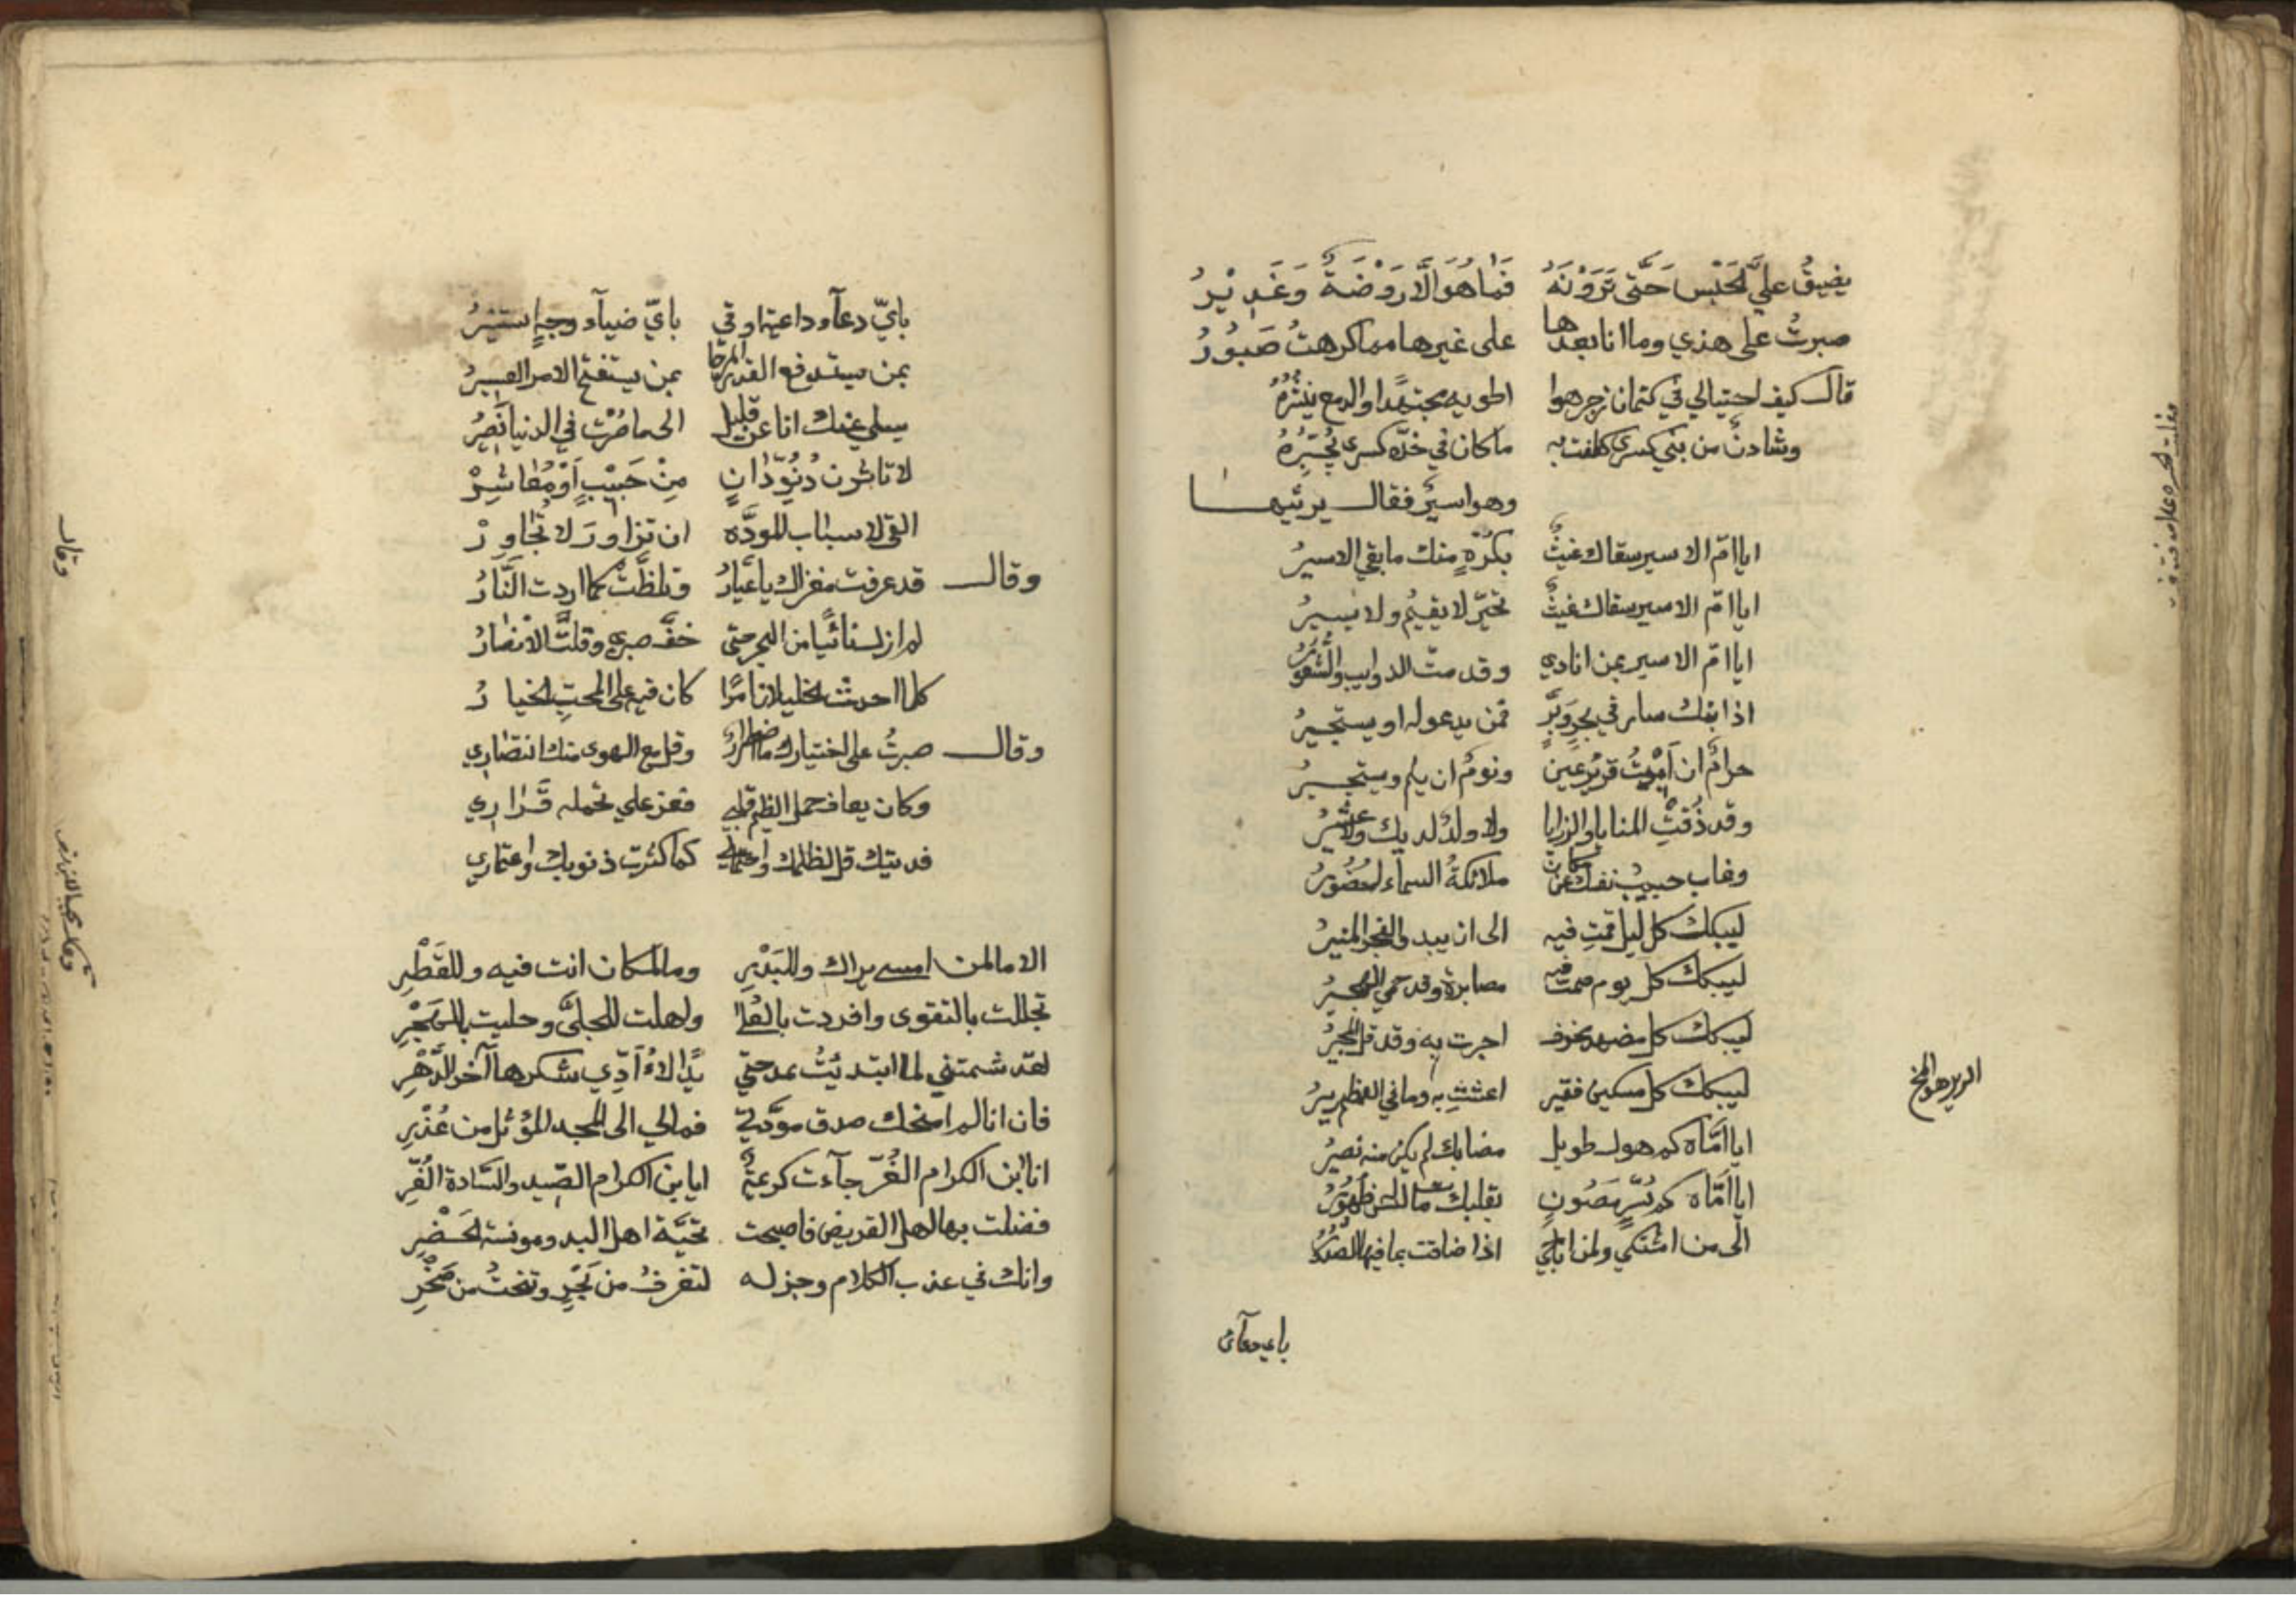 يضيقُ عليَّ الحَبْس حَتَّى تَرَوْنَهُ فَمَا هُوَ الَّا رَوْضَةٌ وَغَدِيْرُ
صبرتُ على هذي وما انا بعدها على غيرها مما كرهتُ صَبُورُ
قال كيف احتيالي في كتمان اطويه مجتهدًا والدمع ينثُرُهُ
وشادنٌ من بني كسرى كلفت به ما كان في خدّه كسرى
وهو اسيرٌ فقال يرثيها
ايا امّ الاسير سقاك غيثٌ بكُرْهٍ منك ما بقي الاسيرُ
ايا امّ الاسير سقاك غيثٌ تحيّر لا يقيمُ ولا يسيرُ
ايا امّ الاسير بمن انادي وقد متّ الدوايب والشعورُ
اذا ابنك سار في بحرٍ وَبَرٍّ فمن يدعو له او يستجيرُ
حرامٌ ان اَبِيْتُ قريرَ عين ونومٌ ان يلم ويستجيرُ
وقد ذُقتِ المنايا والرزايا ولا ولدٌ لديك ولا عشيرُ
وغاب حبيبُ نفسك عن مكان ملائكةُ السماء له حُضُورُ
ليبكك كل ليل قمتِ فيه الى ان يبدو الفجر المنيرُ
ليبكك كل يوم صمت فيه مصابرة وقد حمي الهجيرُ
ليبكك كل مضهد مخوف اجرت به وقد قل المجيرُ
ليبكك كل مسكين فقير اعثتِ به وما في العظم ريرُ
الرير هو المخ
ايا امَّاه كم هول طويل مضا بك لم يكن منه نصيرُ
ايا امَّاه كم سُرٍّ مَصُونٍ بقلبك مات ليس له ظهورُ
الى من اشتكي ولمن اناجي اذا ضاقت بما فيها الصدُورُ
باي دعآئ
بايّ دعآء داعية اوقي بايّ ضيآء وجهٍ استنيرُ
بمن يستدفع القدر المرجا بمن يستفتح الامر العسيرُ
يسلي عنك انا عن قليل الى ما صُرْتِ في الدنيا نَصِرُ
لا تاثرون دُنُوّ دَانٍ مِنْ حَبِيْبٍ اَوْ مُعَاشِرْ
القى لاسباب المودَّه ان تزاور لا تُجَاوِرْ
وقال قد عرفت مغزاك يا عيّارُ وتلظَّتْ كما اردت النَّارُ
لم ازل ثائيًا من الهجر حتى خفَّ صبري وقلتَّ الانصَارُ
كلما احدث الخليلان امرًا كان فيه على المحبّ الخيارُ
وقال صبرتُ على اختيارك ما اضطراري وقل مع الهوى منك انتصَاري
وكان يعاف حمل الظيم قلبي فعز علي تحمله قَرَاري
فديتك قل لظلمك واحتمالي كما كثرت ذنوبك واعتذاري
الا ما لمن امسى يراك وللبَدْرِ وما لمكان انت فيه وللقَطْرِ
تجللت بالتقوى وافردت بالعُلَا واهلت للجلَّى وحليت بالفخْرِ
لقد شمتني لما ابتديتُ بمدحتي يَدًا لاَ أُؤَدِّي شكرها آخر الدَّهْرِ
فان انا لم امنحك صدق مودَّتي فمالي الى المجد المؤثل من عُذْرِ
ايا ابن الكرام الغُرّ جآءت كريمةً ايا بن الكرام الصّيد والسَّادة الغُرِّ
فضلت بها اهل القريض فاصبحت تحيَّة اهل البدو ومونسة الحَضْرِ
وانك في عذب الكلام وجزله لتغرفُ من بَحْرٍ وتنحتُ من صَخْرِ
وقال